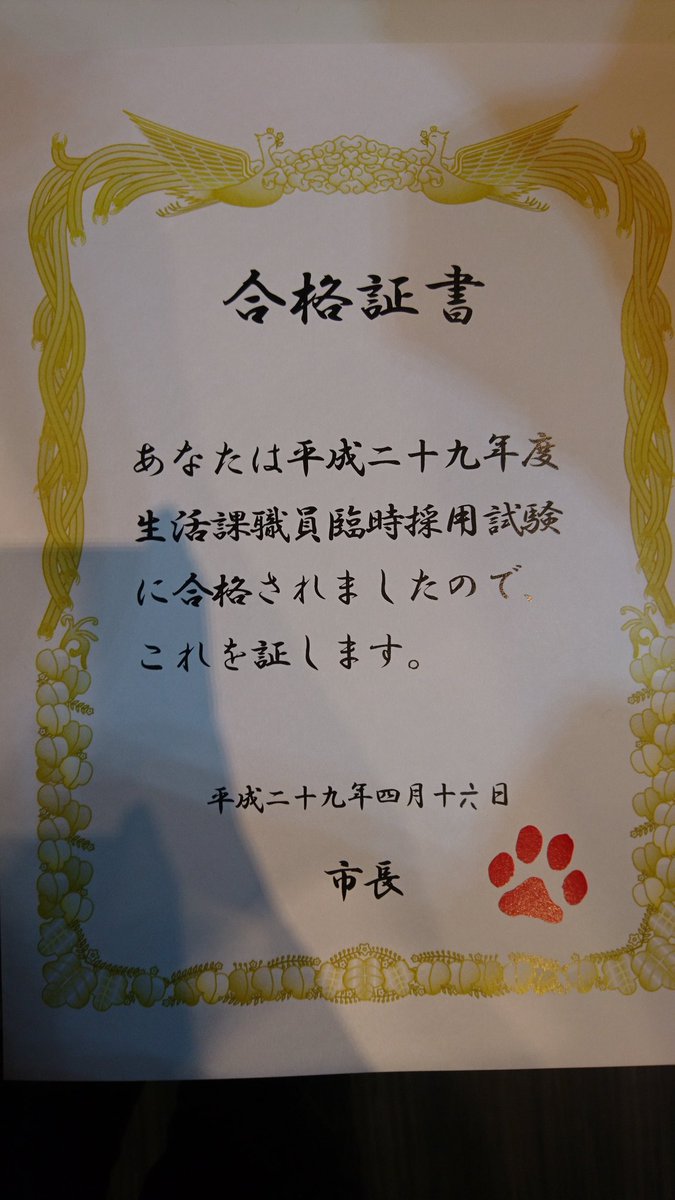 合格証書
あなたは平成二十九年度
生活課職員臨時採用試験
に合格されましたので、
これを証します。
平成二十九年四月十六日
市長